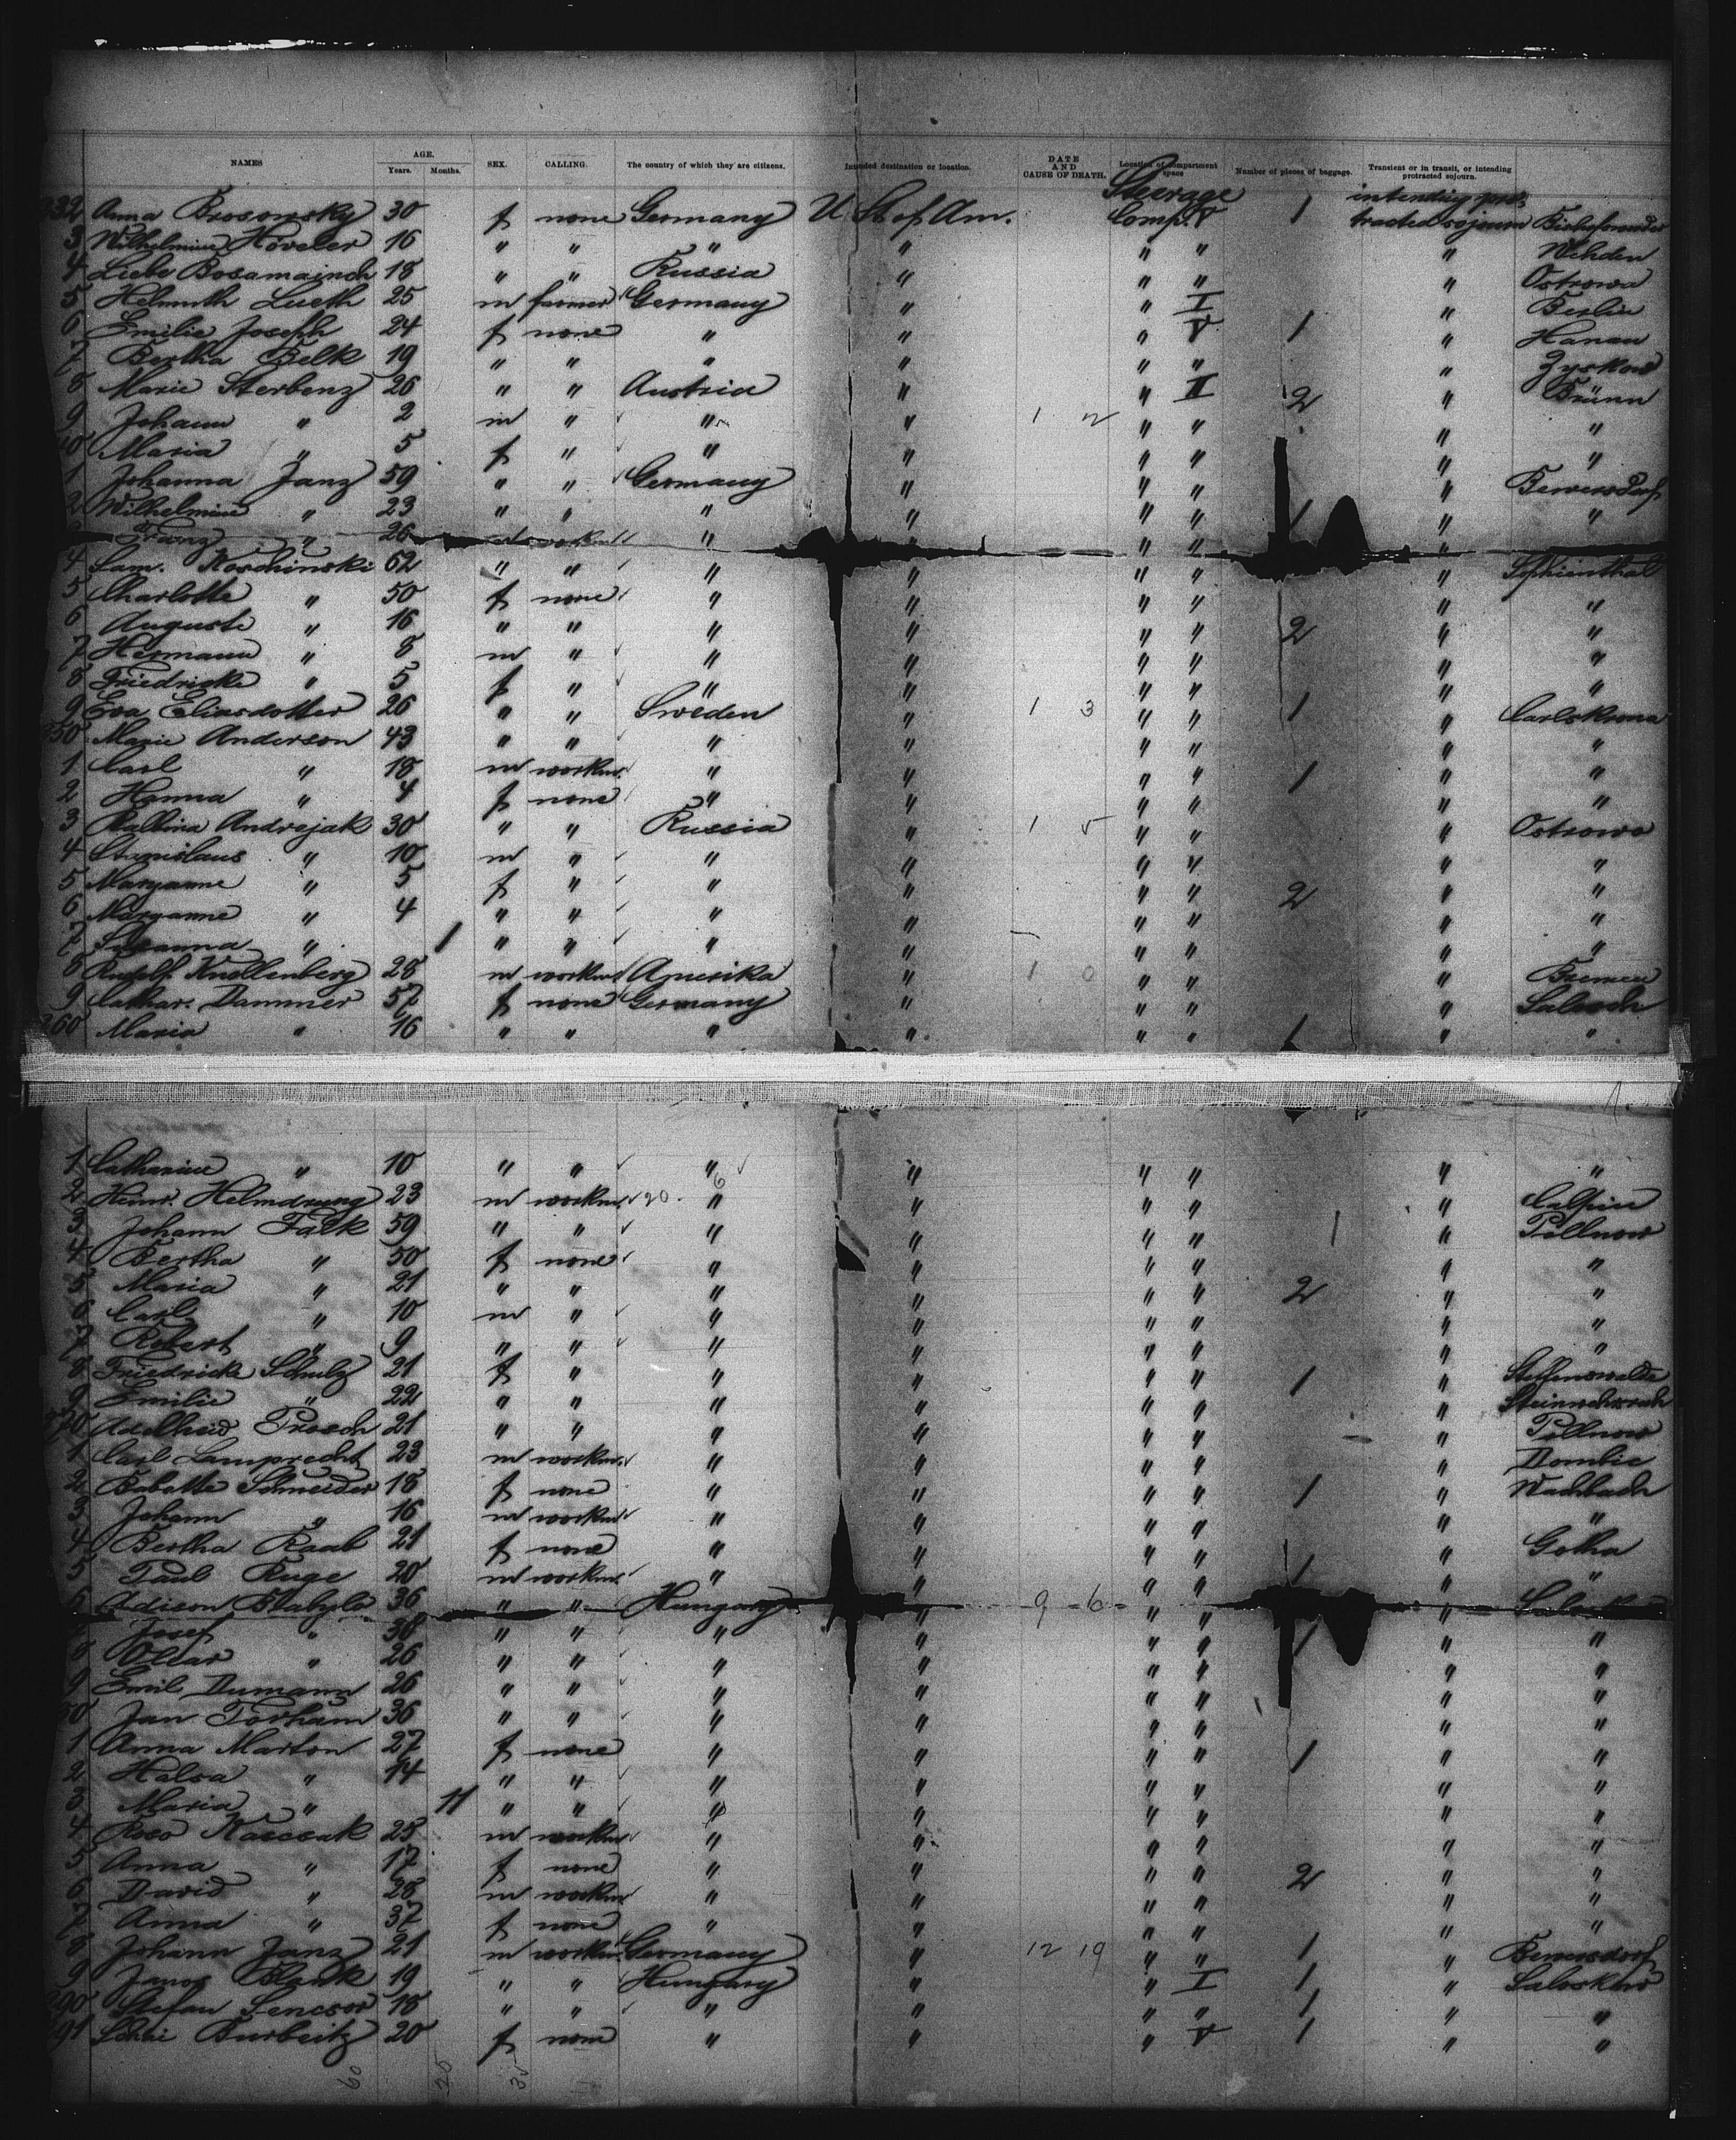 NAMES AGE. Years. Months. SEX. CALLING. The country of which they are citizens. Intended destination or location. DATE AND CAUSE OF DEATH. Location of compartment space Number of pieces of baggage. Transient or in transit, or intending protracted sojourn.
Steerage intending pro-
332 Anna Brosowsky 30 f none Germany U St of Am. Comp. V 1 tracted sojourn
3 Wilhelmine Höveler 16 " " " " " " " Wehden
4 Liebe 18 " " Russia " " " " Ostrowo
5 Helmuth Lueth 25 m farmer Germany " " I " Berlin
6 Emilie Joseph 24 f none " " " V 1 " Hanau
7 Bertha Belk 19 " " " " " " " Zyskow
8 Marie Sterbenz 26 " " Austria " " II 2 " Brünn
9 Johann " 2 m " " " 1 2 " " " "
40 Maria " 5 f " " " " " " "
1 Johanna Janz 59 " " Germany " " " "
2 Wilhelmine " 23 " " " " " " 1 " "
Franz " 26 m workm " " " " "
4 Sam. Koschinski 62 " " " " " " " Sophienthal
5 Charlotte " 50 f none " " " " " "
6 Auguste " 16 " " " " " " 2 " "
7 Hermann " 8 m " " " " " " "
8 Friedricke " 5 f " " " " " " "
9 Eva Eliasdotter 26 " " Sweden " 1 3 " " 1 " Carlskrona
350 Marie Anderson 43 " " " " " " " "
1 Carl " 18 m workm. " " " " 1 " "
2 Hanna " 4 f none " " " " " "
3 Andrejak 30 " " Russia " 1 5 " " " Ostrowo
4 Stanislaus " 10 m " " " " " " "
5 Maryanne " 5 f " " " " " 2 " "
6 Maryanne " 4 " " " " " " " "
7 Susanna " 1 " " " " " " " "
8 Rudolf Knollenberg 28 m workm Amerika " 1 0 " " " Bremen
9 Cathar. Dammer 57 f none Germany " " " "
360 Maria " 16 " " " " " " 1 " "
1 Catharine " 10 " " " " " " " "
2 Heinr. Helmdrung 23 m workm. 20. 6 " " " " "
3 Johann Falk 59 " " " " " " 1 " Pollnow
4 Bertha " 50 f none " " " " " "
5 Maria " 21 " " " " " " 2 " "
6 Carl " 10 m " " " " " " "
7 Robert " 9 " " " " " " " "
8 Friedricke Schulz 21 f " " " " " 1 " Steffenswalde
9 Emilie " 22 " " " " " " "
370 Adelheid Prosch 21 " " " " " " " Pollnow
1 Carl Lamprecht 23 m workm. " " " " " Dombie
2 Babette Schneider 18 f none " " " " 1 " Wachbach
3 Johann " 16 m workm " " " " " "
4 Bertha Raab 21 f none " " " " " Gotha
5 Paul Ruge 20 m workm. " " " " 1 " "
6 36 " " Hungary " 9 6 " " "
Josef " 38 " " " " " " 1 " "
8 " 26 " " " " " " " "
9 Emil Dumann 26 " " " " " " " "
80 Jan Torham 36 " " " " " " " "
1 Anna Marton 27 f none " " " " 1 " "
2 Halsa " 14 " " " " " " " "
3 Maria " 11 " " " " " " " "
4 Kascsak 28 m workm " " " " " "
5 Anna " 17 f none " " " " 2 " "
6 David " 28 m workm " " " " " "
7 Anna " 37 f none " " " " " "
8 Johann Janz 21 m workm. Germany " 12 19 " " 1 "
9 Janos Blank 19 " " Hungary " " I 1 "
390 Stefan Sencsor 18 " " " " " " 1 " "
391 20 f none " " " V 1 " "
60 25 35